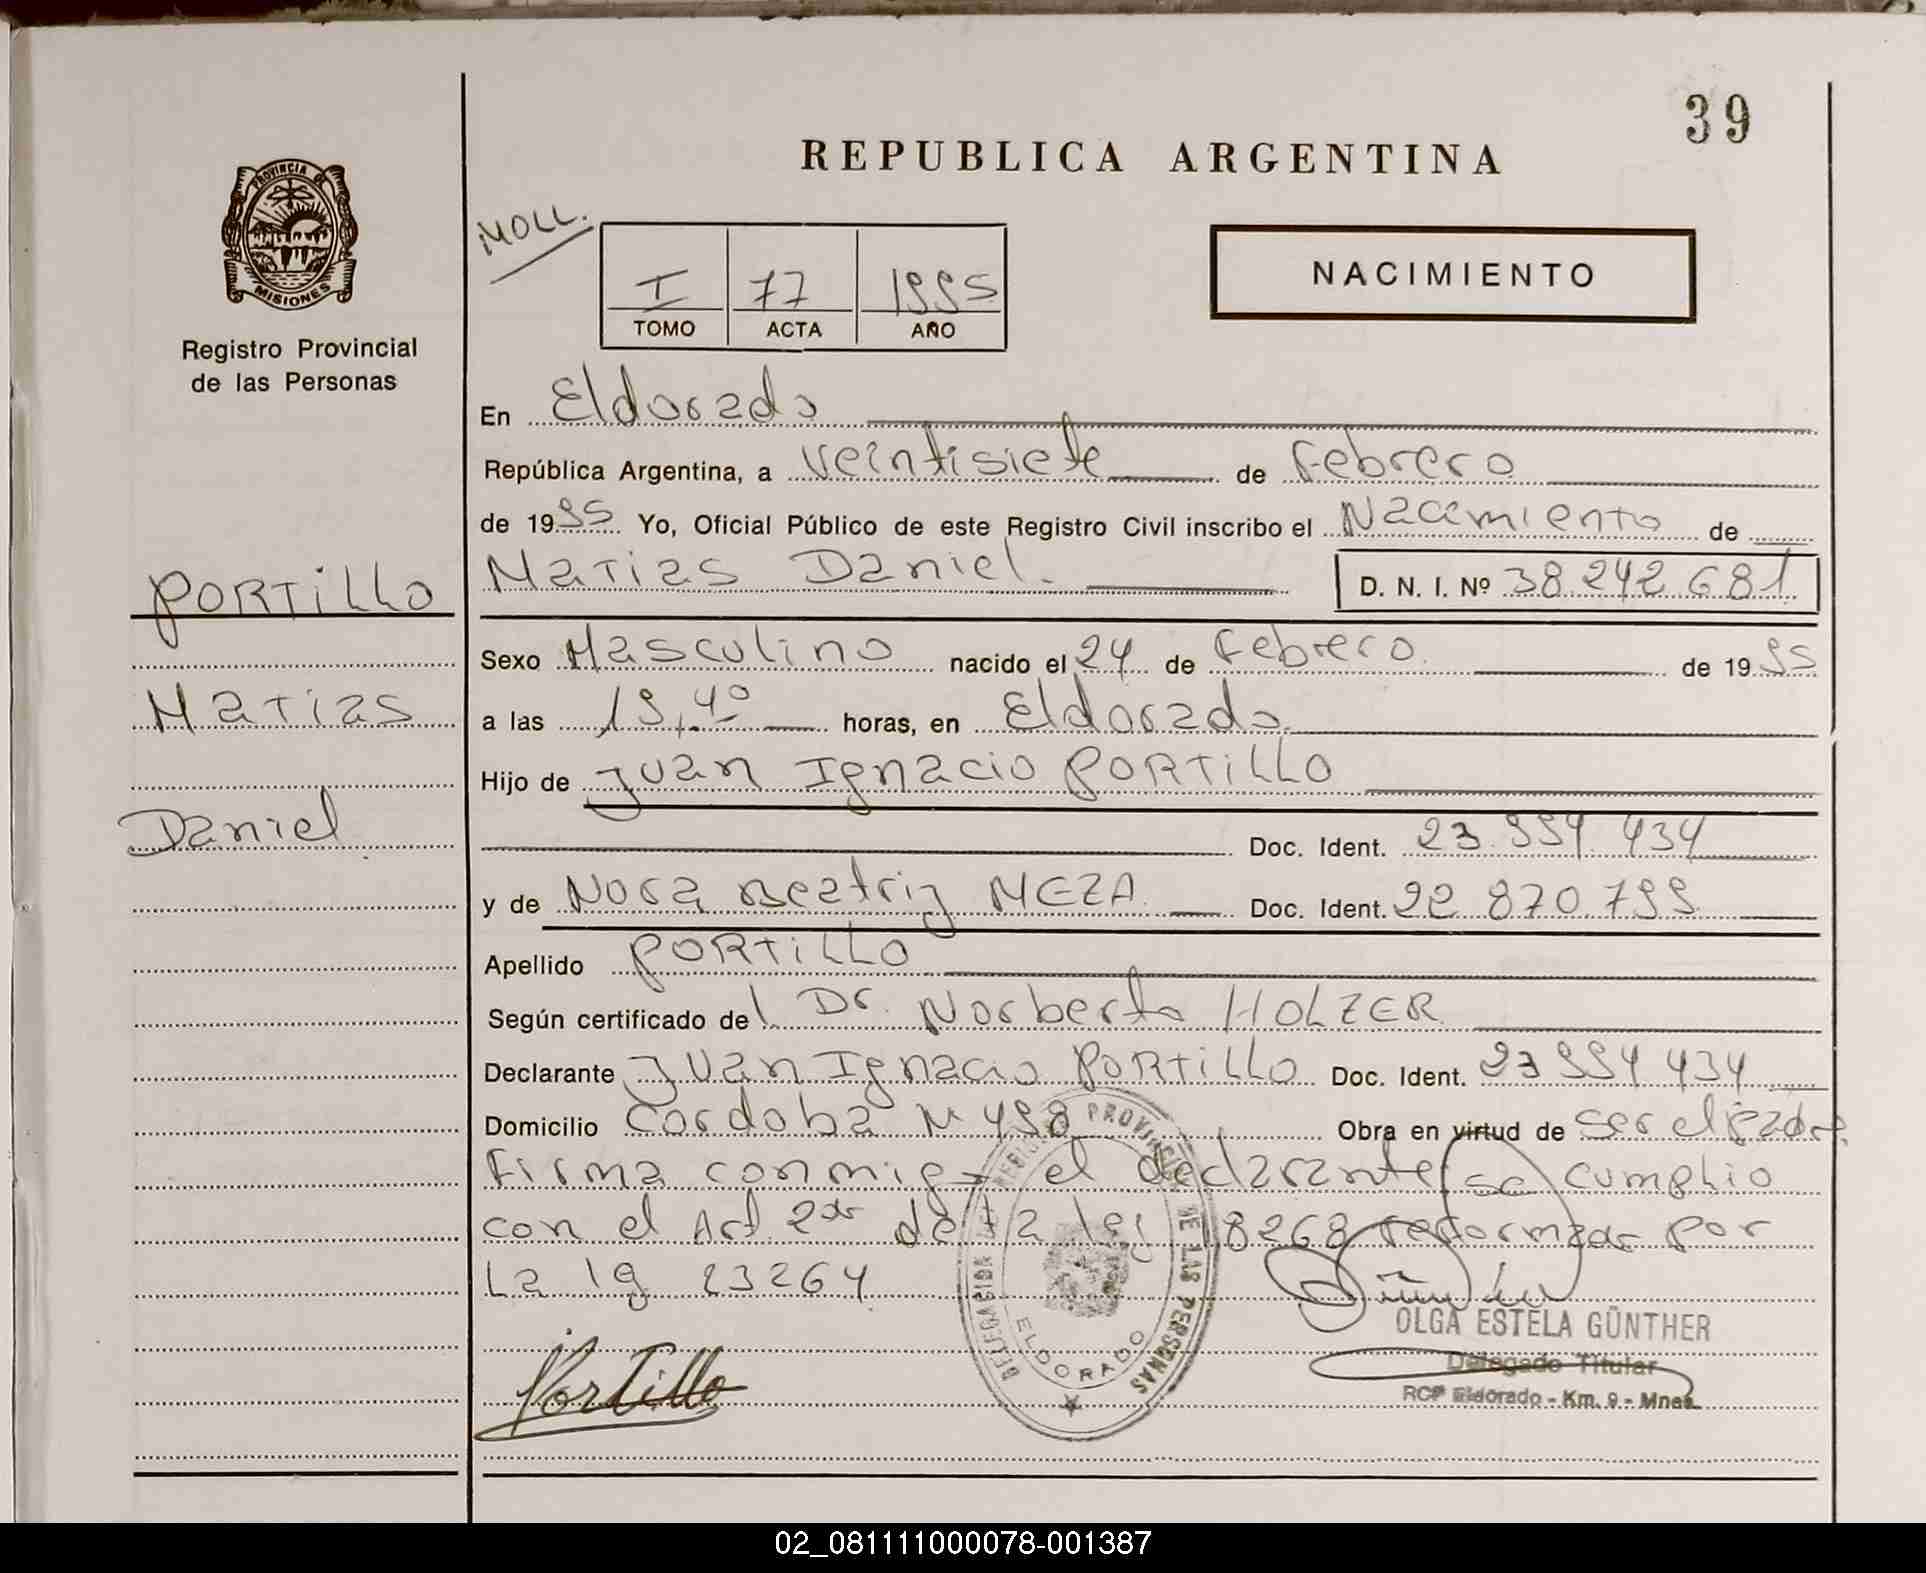 39
REPUBLICA ARGENTINA
PROVINCIA DE
MISIONES
Registro Provincial
de las Personas
MOLL.
NACIMIENTO
I 77 1995
TOMO ACTA AÑO
En Eldorado
República Argentina, a veintisiete de Febrero
de 1995 Yo, Oficial Público de este Registro Civil inscribo el Nacimiento de
Matias Daniel. D. N. I. Nº 38.242.681
PORTILLO
Matias
Daniel
Sexo Masculino nacido el 24 de Febrero de 1995
a las 19,40 horas, en Eldorado
Hijo de Juan Ignacio PORTILLO
Doc. Ident. 23.994.434
y de Nora Beatriz MEZA Doc. Ident. 22.870.799
Apellido PORTILLO
Según certificado del Dr. Norberto HOLZER
Declarante Juan Ignacio PORTILLO Doc. Ident. 23 994 434
Domicilio Cordoba N 498 Obra en virtud de ser el padre
Firma conmigo el declarante se cumplio
con el Art 2do de la ley 18268 reformada por
La ley 23264
Portillo
DELEGACION REGISTRO PROVINCIAL DE LAS PERSONAS
ELDORADO
OLGA ESTELA GÜNTHER
Delegado Titular
RCP Eldorado - Km. 9 - Mnes.
02_081111000078-001387